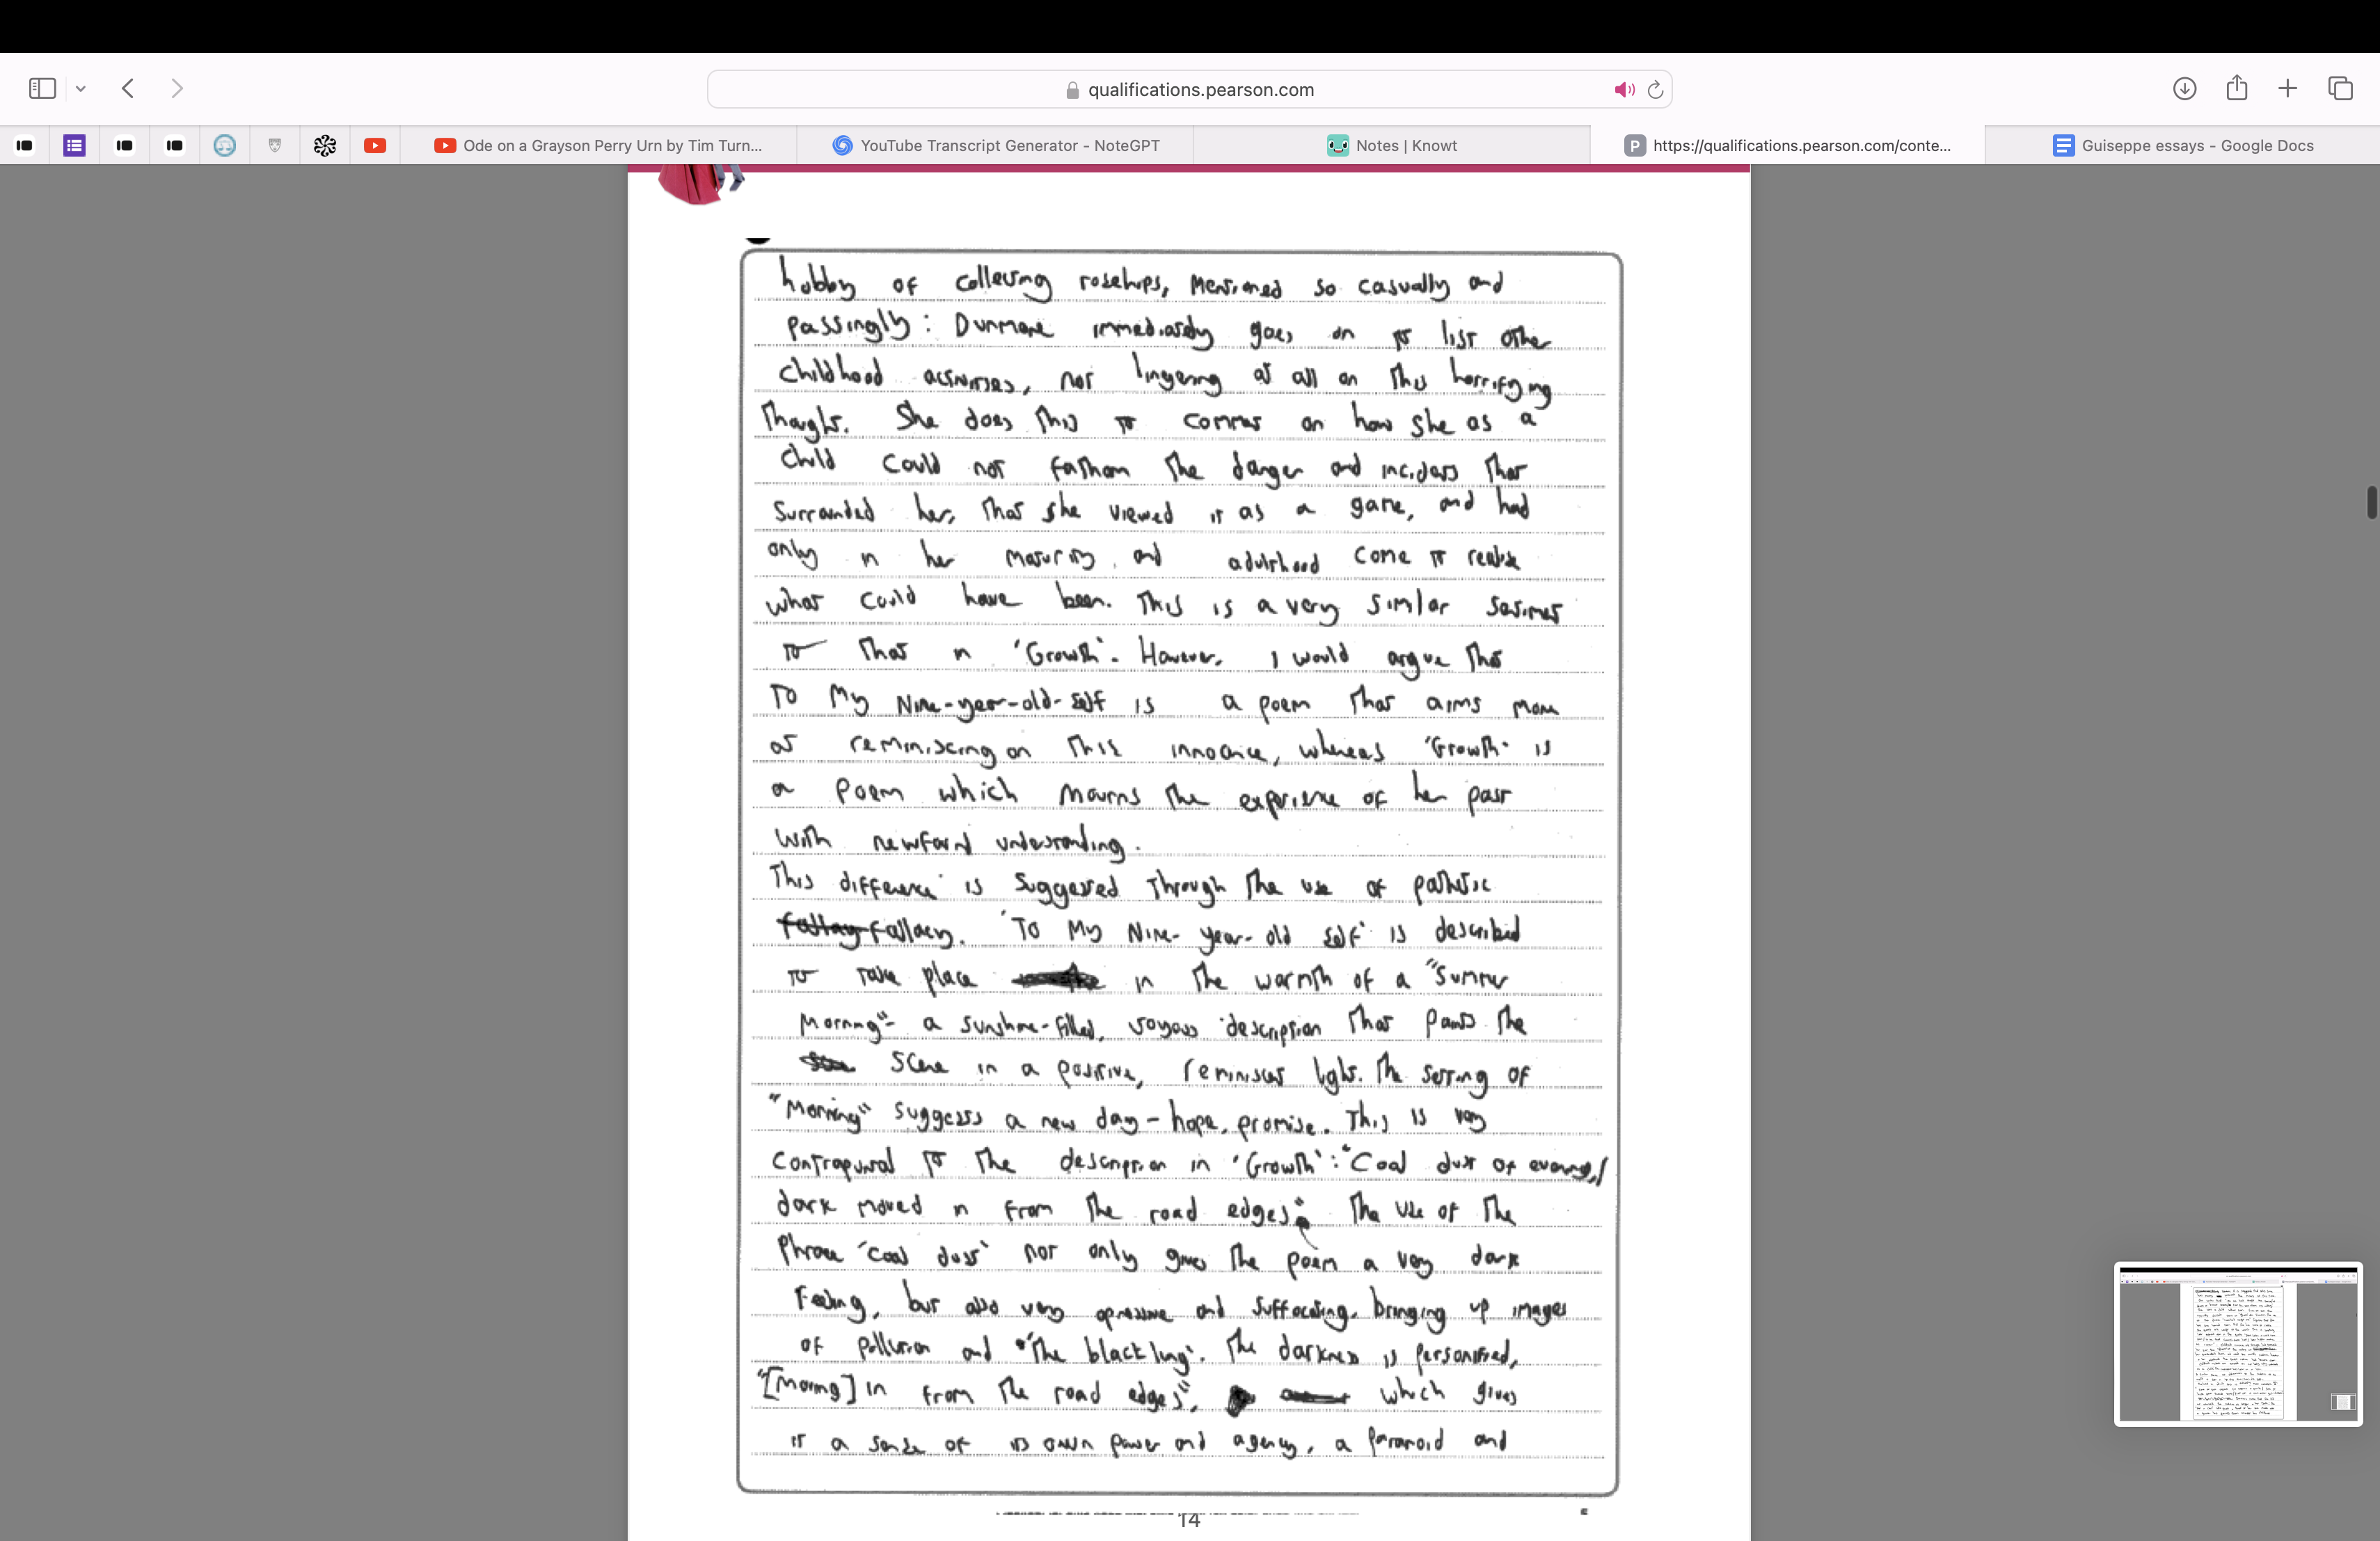 qualifications.pearson.com
Ode on a Grayson Perry Urn by Tim Turn...
YouTube Transcript Generator - NoteGPT
Notes | Knowt
P https://qualifications.pearson.com/conte...
Guiseppe essays - Google Docs
hobby of collecting rosehips, mentioned so casually and
passingly: Dunmore immediately goes on to list other
childhood activities, not lingering at all on this horrifying
thought. She does this to comment on how she as a
child could not fathom the danger and incidents that
surrounded her, that she viewed it as a game, and had
only in her maturity and adulthood come to realise
what could have been. This is a very similar sentiment
to that in 'Growth'. However, I would argue that
To My Nine-year-old-self is a poem that aims more
at reminiscing on this innocence, whereas 'Growth' is
a poem which mourns the experience of her past
with newfound understanding.
This difference is suggested through the use of pathetic
fallacy. 'To My Nine-year-old self' is described
to take place in the warmth of a "summer
morning" - a sunshine-filled, joyous description that paints the
scene in a positive, reminiscent light. The setting of
"Morning" suggests a new day - hope, promise. This is very
contrapuntal to the description in 'Growth': "Coal dust of evening/
dark moved in from the road edges". The use of the
phrase 'coal dust' not only gives the poem a very dark
feeling, but also very opressive and suffocating, bringing up images
of pollution and "the black lung". The darkness is personified,
"[moving] in from the road edges", which gives
it a sense of its own power and agency, a paranoid and
14